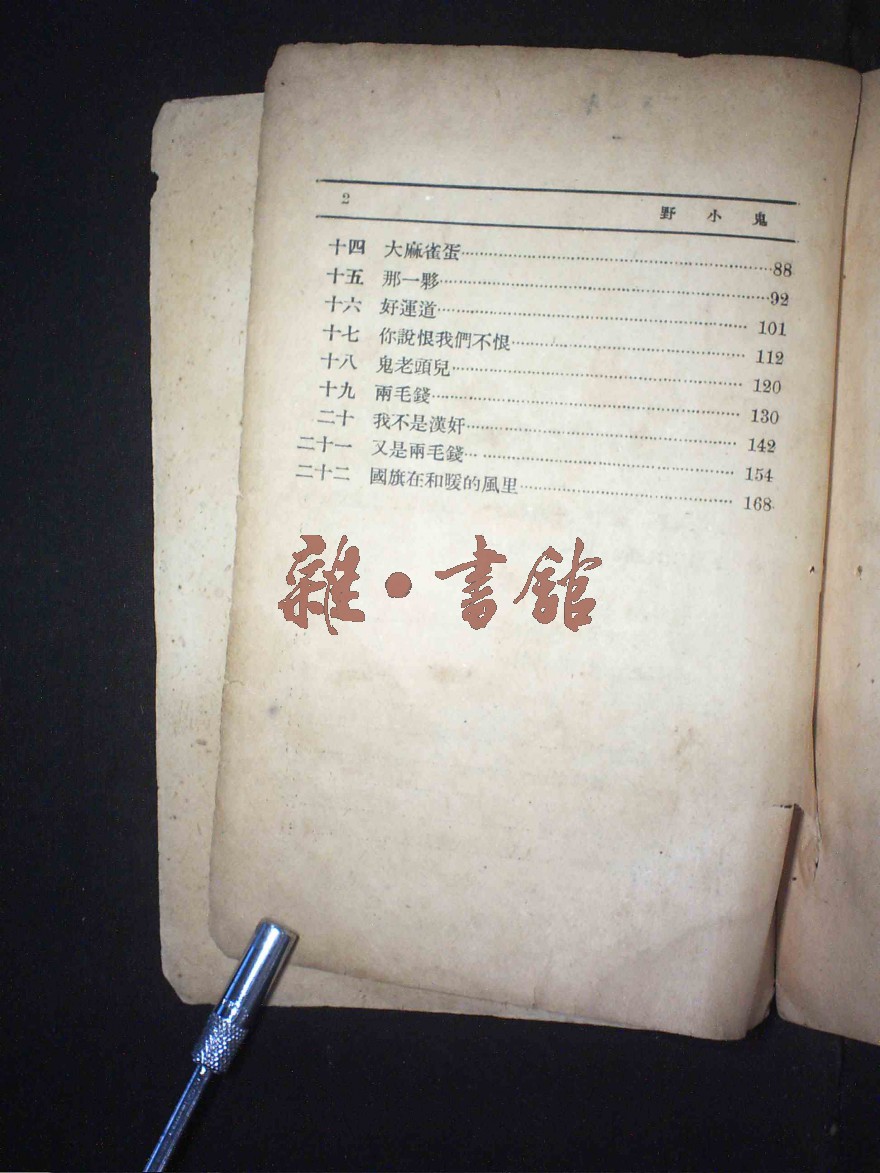 2 野小鬼
十四 大麻雀蛋……88
十五 那一夥……92
十六 好運道……101
十七 你說恨我們不恨……112
十八 鬼老頭兒……120
十九 兩毛錢……130
二十 我不是漢奸……142
二十一 又是兩毛錢……154
二十二 國旗在和暖的風里……168
雜•書館